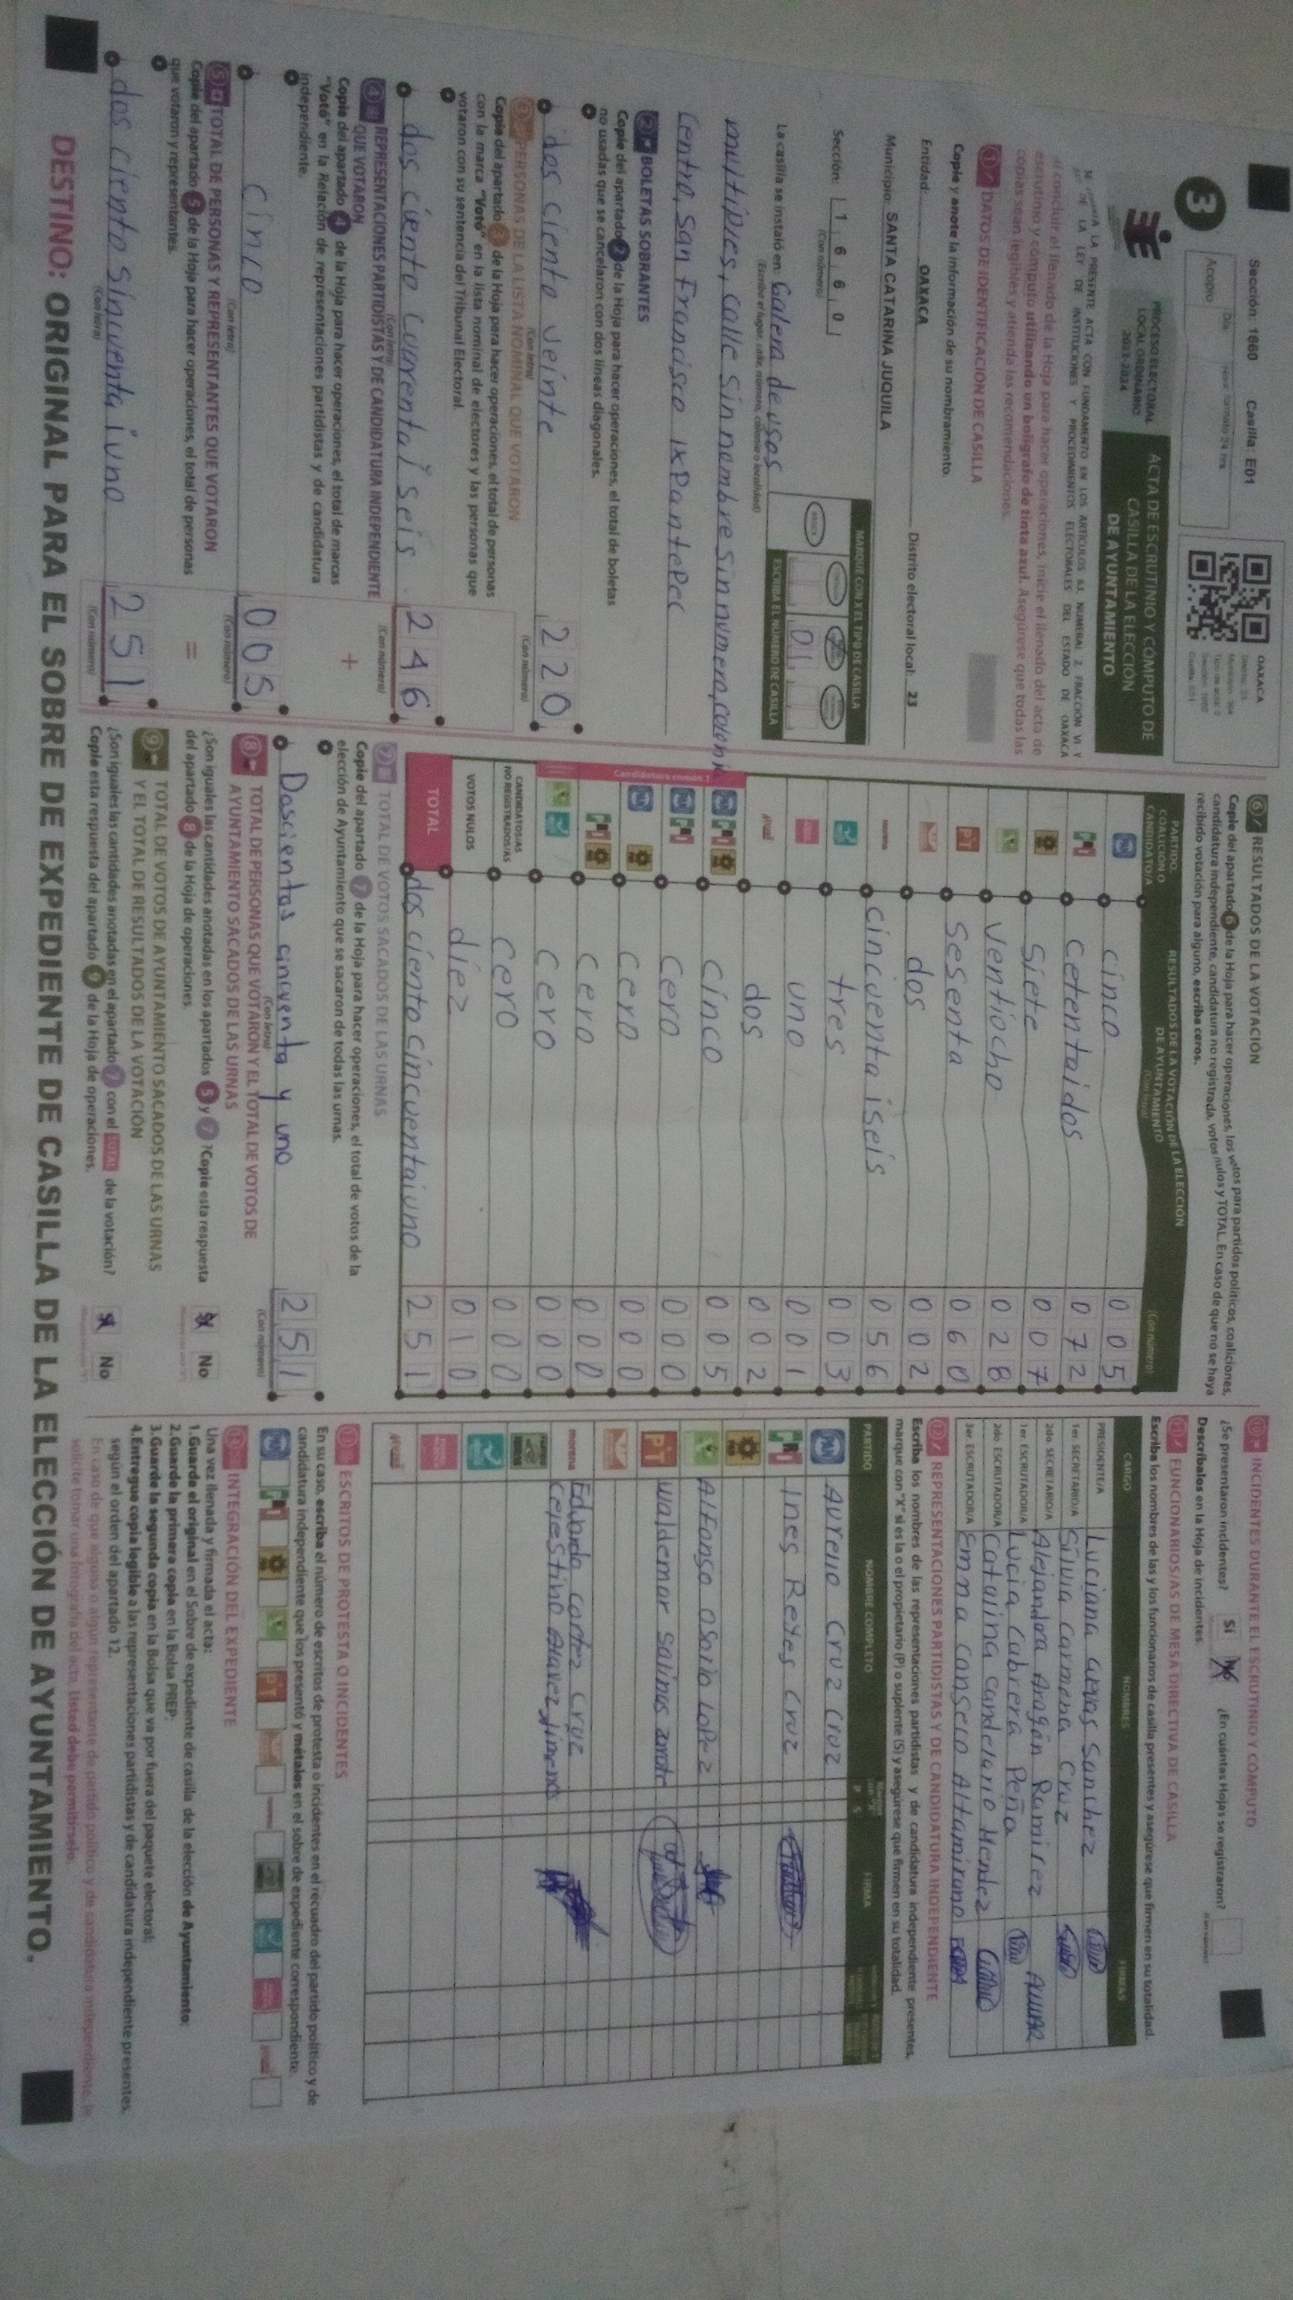 Sección: 1660 Casilla: E01
OAXACA
3
Acopio
PROCESO ELECTORAL
LOCAL ORDINARIO
2023-2024
ACTA DE ESCRUTINIO Y CÓMPUTO DE
CASILLA DE LA ELECCIÓN
DE AYUNTAMIENTO
Al concluir el llenado de la Hoja para hacer operaciones, inicie el llenado del acta de
escrutinio y cómputo utilizando un bolígrafo de tinta azul. Asegúrese que todas las
copias sean legibles y atienda las recomendaciones.
1 DATOS DE IDENTIFICACIÓN DE CASILLA
Copie y anote la información de su nombramiento.
Entidad: OAXACA Distrito electoral local: 23
Municipio: SANTA CATARINA JUQUILA
Sección: 1 6 6 0
(Con número)
MARQUE CON X EL TIPO DE CASILLA
01
ESCRIBA EL NÚMERO DE CASILLA
La casilla se instaló en: Galera de usos
(Escriba el lugar, calle, número, colonia o localidad)
multiples, calle sin nombre sin numero, colonia
Centro, San Francisco Ixpantepec
2 BOLETAS SOBRANTES
Copie del apartado 2 de la Hoja para hacer operaciones, el total de boletas
no usadas que se cancelaron con dos líneas diagonales.
dos ciento veinte 220
(Con letra) (Con número)
3 PERSONAS DE LA LISTA NOMINAL QUE VOTARON
Copie del apartado 3 de la Hoja para hacer operaciones, el total de personas
con la marca "Votó" en la lista nominal de electores y las personas que
votaron con su sentencia del Tribunal Electoral.
dos ciento cuarenta i seis. 246
(Con letra) (Con número)
4 REPRESENTACIONES PARTIDISTAS Y DE CANDIDATURA INDEPENDIENTE
QUE VOTARON
+
Copie del apartado 4 de la Hoja para hacer operaciones, el total de marcas
"Votó" en la Relación de representaciones partidistas y de candidatura
independiente.
cinco 005
(Con letra) (Con número)
5 TOTAL DE PERSONAS Y REPRESENTANTES QUE VOTARON
=
Copie del apartado 5 de la Hoja para hacer operaciones, el total de personas
que votaron y representantes.
dos ciento sincuenta i uno 251
(Con letra) (Con número)
6 RESULTADOS DE LA VOTACIÓN
Copie del apartado 6 de la Hoja para hacer operaciones, los votos para partidos políticos, coaliciones,
candidatura independiente, candidatura no registrada, votos nulos y TOTAL. En caso de que no se haya
recibido votación para alguno, escriba ceros.
PARTIDO,
COALICIÓN O
CANDIDATO/A
RESULTADOS DE LA VOTACIÓN DE LA ELECCIÓN
DE AYUNTAMIENTO
(Con letra) (Con número)
PAN cinco 005
PRI cetentaidos 072
siete 007
ventiocho 028
PT sesenta 060
dos 002
morena cincuenta i seis 056
tres 003
uno 001
dos 002
Candidatura común 1
cinco 005
cero 000
cero 000
cero 000
cero 000
CANDIDATOS/AS
NO REGISTRADOS/AS cero 000
VOTOS NULOS diez 010
TOTAL dos ciento cincuentaiuno 251
7 TOTAL DE VOTOS SACADOS DE LAS URNAS
Copie del apartado 7 de la Hoja para hacer operaciones, el total de votos de la
elección de Ayuntamiento que se sacaron de todas las urnas.
Doscientos cincuenta y uno 251
(Con letra) (Con número)
8 TOTAL DE PERSONAS QUE VOTARON Y EL TOTAL DE VOTOS DE
AYUNTAMIENTO SACADOS DE LAS URNAS
¿Son iguales las cantidades anotadas en los apartados 5 y 7? Copie esta respuesta
del apartado 8 de la Hoja de operaciones. Sí No
9 TOTAL DE VOTOS DE AYUNTAMIENTO SACADOS DE LAS URNAS
Y EL TOTAL DE RESULTADOS DE LA VOTACIÓN
¿Son iguales las cantidades anotadas en el apartado 7 con el TOTAL de la votación?
Copie esta respuesta del apartado 9 de la Hoja de operaciones. Sí No
10 INCIDENTES DURANTE EL ESCRUTINIO Y CÓMPUTO
¿Se presentaron incidentes? Sí No ¿En cuántas Hojas se registraron?
Descríbalos en la Hoja de incidentes.
11 FUNCIONARIOS/AS DE MESA DIRECTIVA DE CASILLA
Escriba los nombres de las y los funcionarios de casilla presentes y asegúrese que firmen en su totalidad.
CARGO NOMBRES FIRMAS
PRESIDENTE/A Luciana Cuevas Sanchez
1er SECRETARIO/A Silvia Carmena Cruz
2do SECRETARIO/A Alejandra Aragón Ramirez
1er ESCRUTADOR/A Lucia Cabrera Peña
2do ESCRUTADOR/A Catalina Candelario Mendez
3er ESCRUTADOR/A Emma Canseco Altamirano
12 REPRESENTACIONES PARTIDISTAS Y DE CANDIDATURA INDEPENDIENTE
Escriba los nombres de las representaciones partidistas y de candidatura independiente presentes,
marque con "X" si es la o el propietario (P) o suplente (S) y asegúrese que firmen en su totalidad.
PARTIDO NOMBRE COMPLETO P S FIRMA
PAN Aurelio Cruz Cruz
PRI Ines Reyes Cruz
Alfonso Osorio Lopez
PT Waldemar Salinas Zarate
morena Eduardo Cortez Cruz
Celestino Alavez Jimenes
13 ESCRITOS DE PROTESTA O INCIDENTES
En su caso, escriba el número de escritos de protesta o incidentes en el recuadro del partido político y de
candidatura independiente que los presentó y métalos en el sobre de expediente correspondiente.
INTEGRACIÓN DEL EXPEDIENTE
Una vez llenada y firmada el acta:
1. Guarde el original en el Sobre de expediente de casilla de la elección de Ayuntamiento;
2. Guarde la primera copia en la Bolsa PREP;
3. Guarde la segunda copia en la Bolsa que va por fuera del paquete electoral;
4. Entregue copia legible a las representaciones partidistas y de candidatura independiente presentes,
según el orden del apartado 12.
En caso de que alguna o algún representante de partido político y de candidatura independiente, le
solicite tomar una fotografía del acta. Usted debe permitírselo.
DESTINO: ORIGINAL PARA EL SOBRE DE EXPEDIENTE DE CASILLA DE LA ELECCIÓN DE AYUNTAMIENTO.